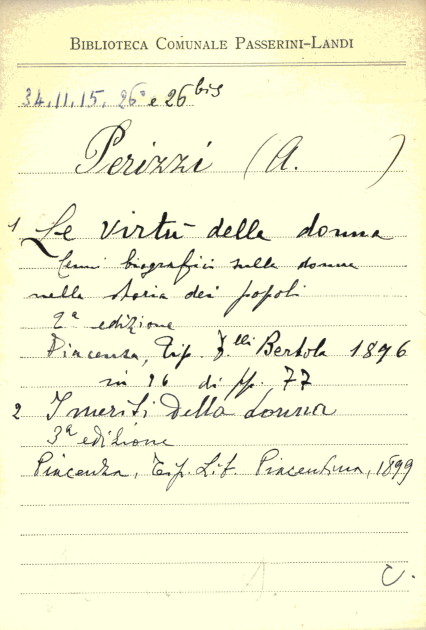 BIBLIOTECA COMUNALE PASSERINI-LANDI
34.11.15. 26° e 26 bis
Perizzi (A. )
1 Le virtù della donna
Cenni biografici sulla donna
nella storia dei popoli
2ª edizione
Piacenza, Tip. F.lli Bertola 1896
in 16 di pp. 77
2 I meriti della donna
3ª edizione
Piacenza, Tip. Lit. Piacentina, 1899